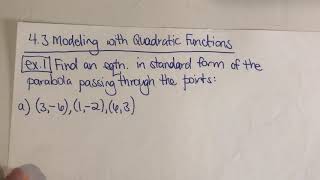 4.3 Modeling with Quadratic Functions
ex.1 Find an eqtn. in standard form of the
parabola passing through the points:
a) (3,-6),(1,-2),(6,3)